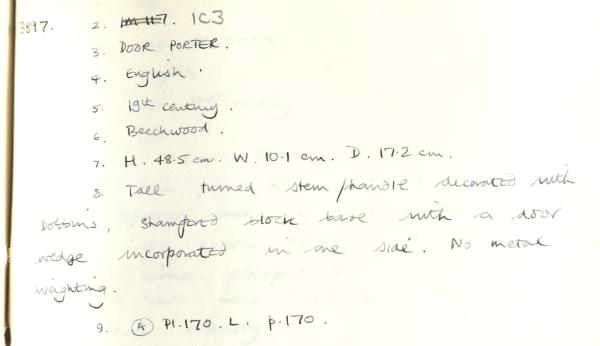 3897. 2. IM 117. 1C3
3. DOOR PORTER.
4. English.
5. 19th century.
6. Beechwood.
7. H. 48.5 cm. W. 10.1 cm. D. 17.2 cm.
8. Tall turned stem/handle decorated with
bobbins, shamfered block base with a door
wedge incorporated in one side. No metal
weighting.
9. (A) Pl.170. L. p.170.